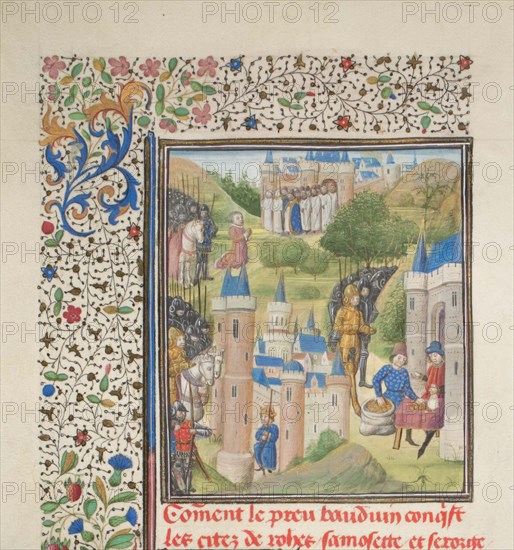 Coment le preu bauduin conqist
les citez de rohes samosette et serorge